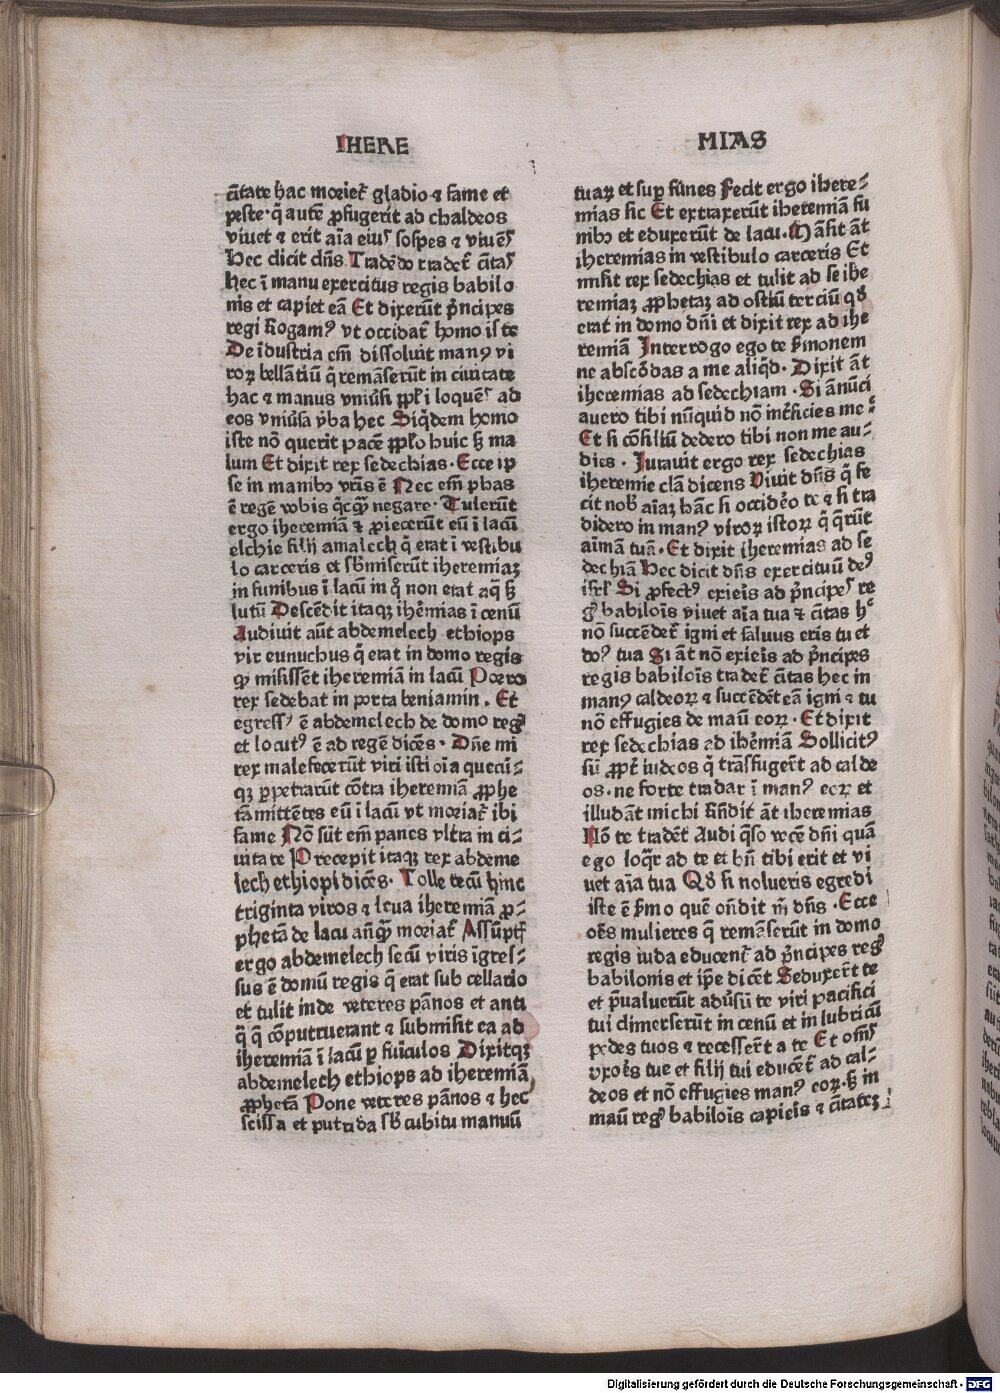 IHERE
MIAS
c̃itate hac moriet̃ gladio ⁊ fame et
peste· q̃ autē ꝓfugerit ad chaldeos
viuet ⁊ erit aĩa eiuˀ sospes ⁊ viuēˀ
Hec dicit dñs Tradēdo tradet̃ c̃itaˀ
hec ĩ manu exercitus regis babilo
nis et capiet eā Et dixerūt p̃ncipes
regi Rogamꝰ vt occidat̃ homo iste
De ĩdustria em̃ dissoluit manꝰ vi
roꝝ bellātiū q̃ remāserūt in ciuitate
hac ⁊ manus vniũsi ꝓpl̃i loquēˀ ad
eos vniũsa ṽba hec Siq̃dem homo
iste nō querit pacē ꝓpl̃o huic ꝫ ma
lum Et dixit rex sedechias· Ecce ip
se in manibꝰ vr̃is ē Nec em̃ phas
ē regē vobis q̃cq̃ꝫ negare· Tulerūt
ergo iheremiā ⁊ ꝓiecerūt eū ĩ lacū
elchie filij amalech q̃ erat ĩ vestibu
lo carceris et sb̃miserūt iheremiaꝫ
in funibus ĩ lacū in q̃ non erat aq̃ ꝫ
lutū Descēdit itaqꝫ ihẽmias ĩ cenū
Audiuit aūt abdemelech ethiops
vir eunuchus q̃ erat in domo regis
qꝫ misissēt iheremiā in lacū Porro
rex sedebat in porta beniamin. Et
egressˀ ē abdemelech de domo regꝭ
et locutꝰ ē ad regē dicēs· Dñe mi
rex malefecerūt viri isti oĩa quecū⸗
qꝫ ꝑpetrarūt cōtra iheremiā ꝓphe
tā mittētes eū ĩ lacū vt moriat̃ ibi
fame Nō sūt em̃ panes vltra in ci⸗
uitate Precepit itaqꝫ rex abdeme
lech ethiopi dicēs· Tolle tecū hinc
triginta viros ⁊ leua iheremiā ꝓ⸗
phetā de lacu añq̃ꝫ moriat̃ Assūptꝭ
ergo abdemelech secū viris ĩgres⸗
sus ē domū regis q̃ erat sub cellario
et tulit inde veteres pānos et anti
q̃ q̃ cōputruerant ⁊ submisit ea ad
iheremiā ĩ lacū ꝑ fuĩculos Dixitqꝫ
abdemelech ethiops ad iheremiā
ꝓphetā Pone veteres pānos ⁊ hec
scissa et putrida sb̃ cubitu manuū
tuaꝝ et suꝑ fūnes Fecit ergo ihere⸗
mias sic Et extraxerūt iheremiā fu
nibꝰ et eduxerūt de lacu. Māsit āt
iheremias in vestibulo carceris Et
misit rex sedechias et tulit ad se ihe
remiaꝫ ꝓphetaꝫ ad ostiū terciū qđ
erat in domo dñi et dixit rex ad ihe
remiā Interrogo ego te s̃monem
ne abscōdas a me aliq̃d· Dixit āt
iheremias ad sedechiam · Si ānūci
auero tibi nūquid nō int̃ficies me⸗
Et si cōsiliū dedero tibi non me au⸗
dies · Iurauit ergo rex sedechias
iheremie clā dicens Viuit dñs q̃ fe
cit nob̃ aĩaꝫ hāc si occidēo te ⁊ si tra
didero in manꝰ viroꝝ istoꝝ q̃ q̃rūt
aĩmā tuā· Et dixit iheremias ad se
dechiā Hec dicit dñs exercituū deꝰ
isrl̃ Si ꝓfectꝰ exieĩs ad p̃ncipeˀ re
gꝭ babiloĩs viuet aĩa tua ⁊ c̃itas hͨ
nō succēdet̃ igni et saluus eris tu et
doꝰ tua Si āt nō exieĩs ad p̃ncipes
regis babiloĩs tradet̃ c̃itas hec in
manꝰ caldeoꝝ ⁊ succēdēt eā igni ⁊ tu
nō effugies de maū eoꝝ· Et dixit
rex sedechias ad ihẽmiā Sollicitꝰ
sū ꝓpt̃ iudeos q̃ trāsfuger̃t ad calde
os· ne forte tradar ĩ manꝰ eoꝝ et
illudāt michi Rñdit āt iheremias
Nō te tradēt Audi q̃so vocē dñi quā
ego loq̃r ad te et bñ tibi erit et vi
uet aĩa tua Qđ si nolueris egredi
iste ē s̃mo quē oñdit m̃ dñs · Ecce
oēs mulieres q̃ remāserūt in domo
regis iuda educent̃ ad p̃ncipes regꝭ
babilonis et ip̃e dicēt Seduxer̃t te
et p̃ualuerūt adũsū te viri pacifici
tui dimerserūt in cenū et in lubricū
pedes tuos ⁊ recesser̃t a te Et om̃ˀ
vxoēs tue et filij tui educēt̃ ad cal⸗
deos et nō effugies manꝰ eoꝝ· ꝫ in
maū regꝭ babiloĩs capieĩs ⁊ c̃itateꝫ
Digitalisierung gefördert durch die Deutsche Forschungsgemeinschaft - DFG